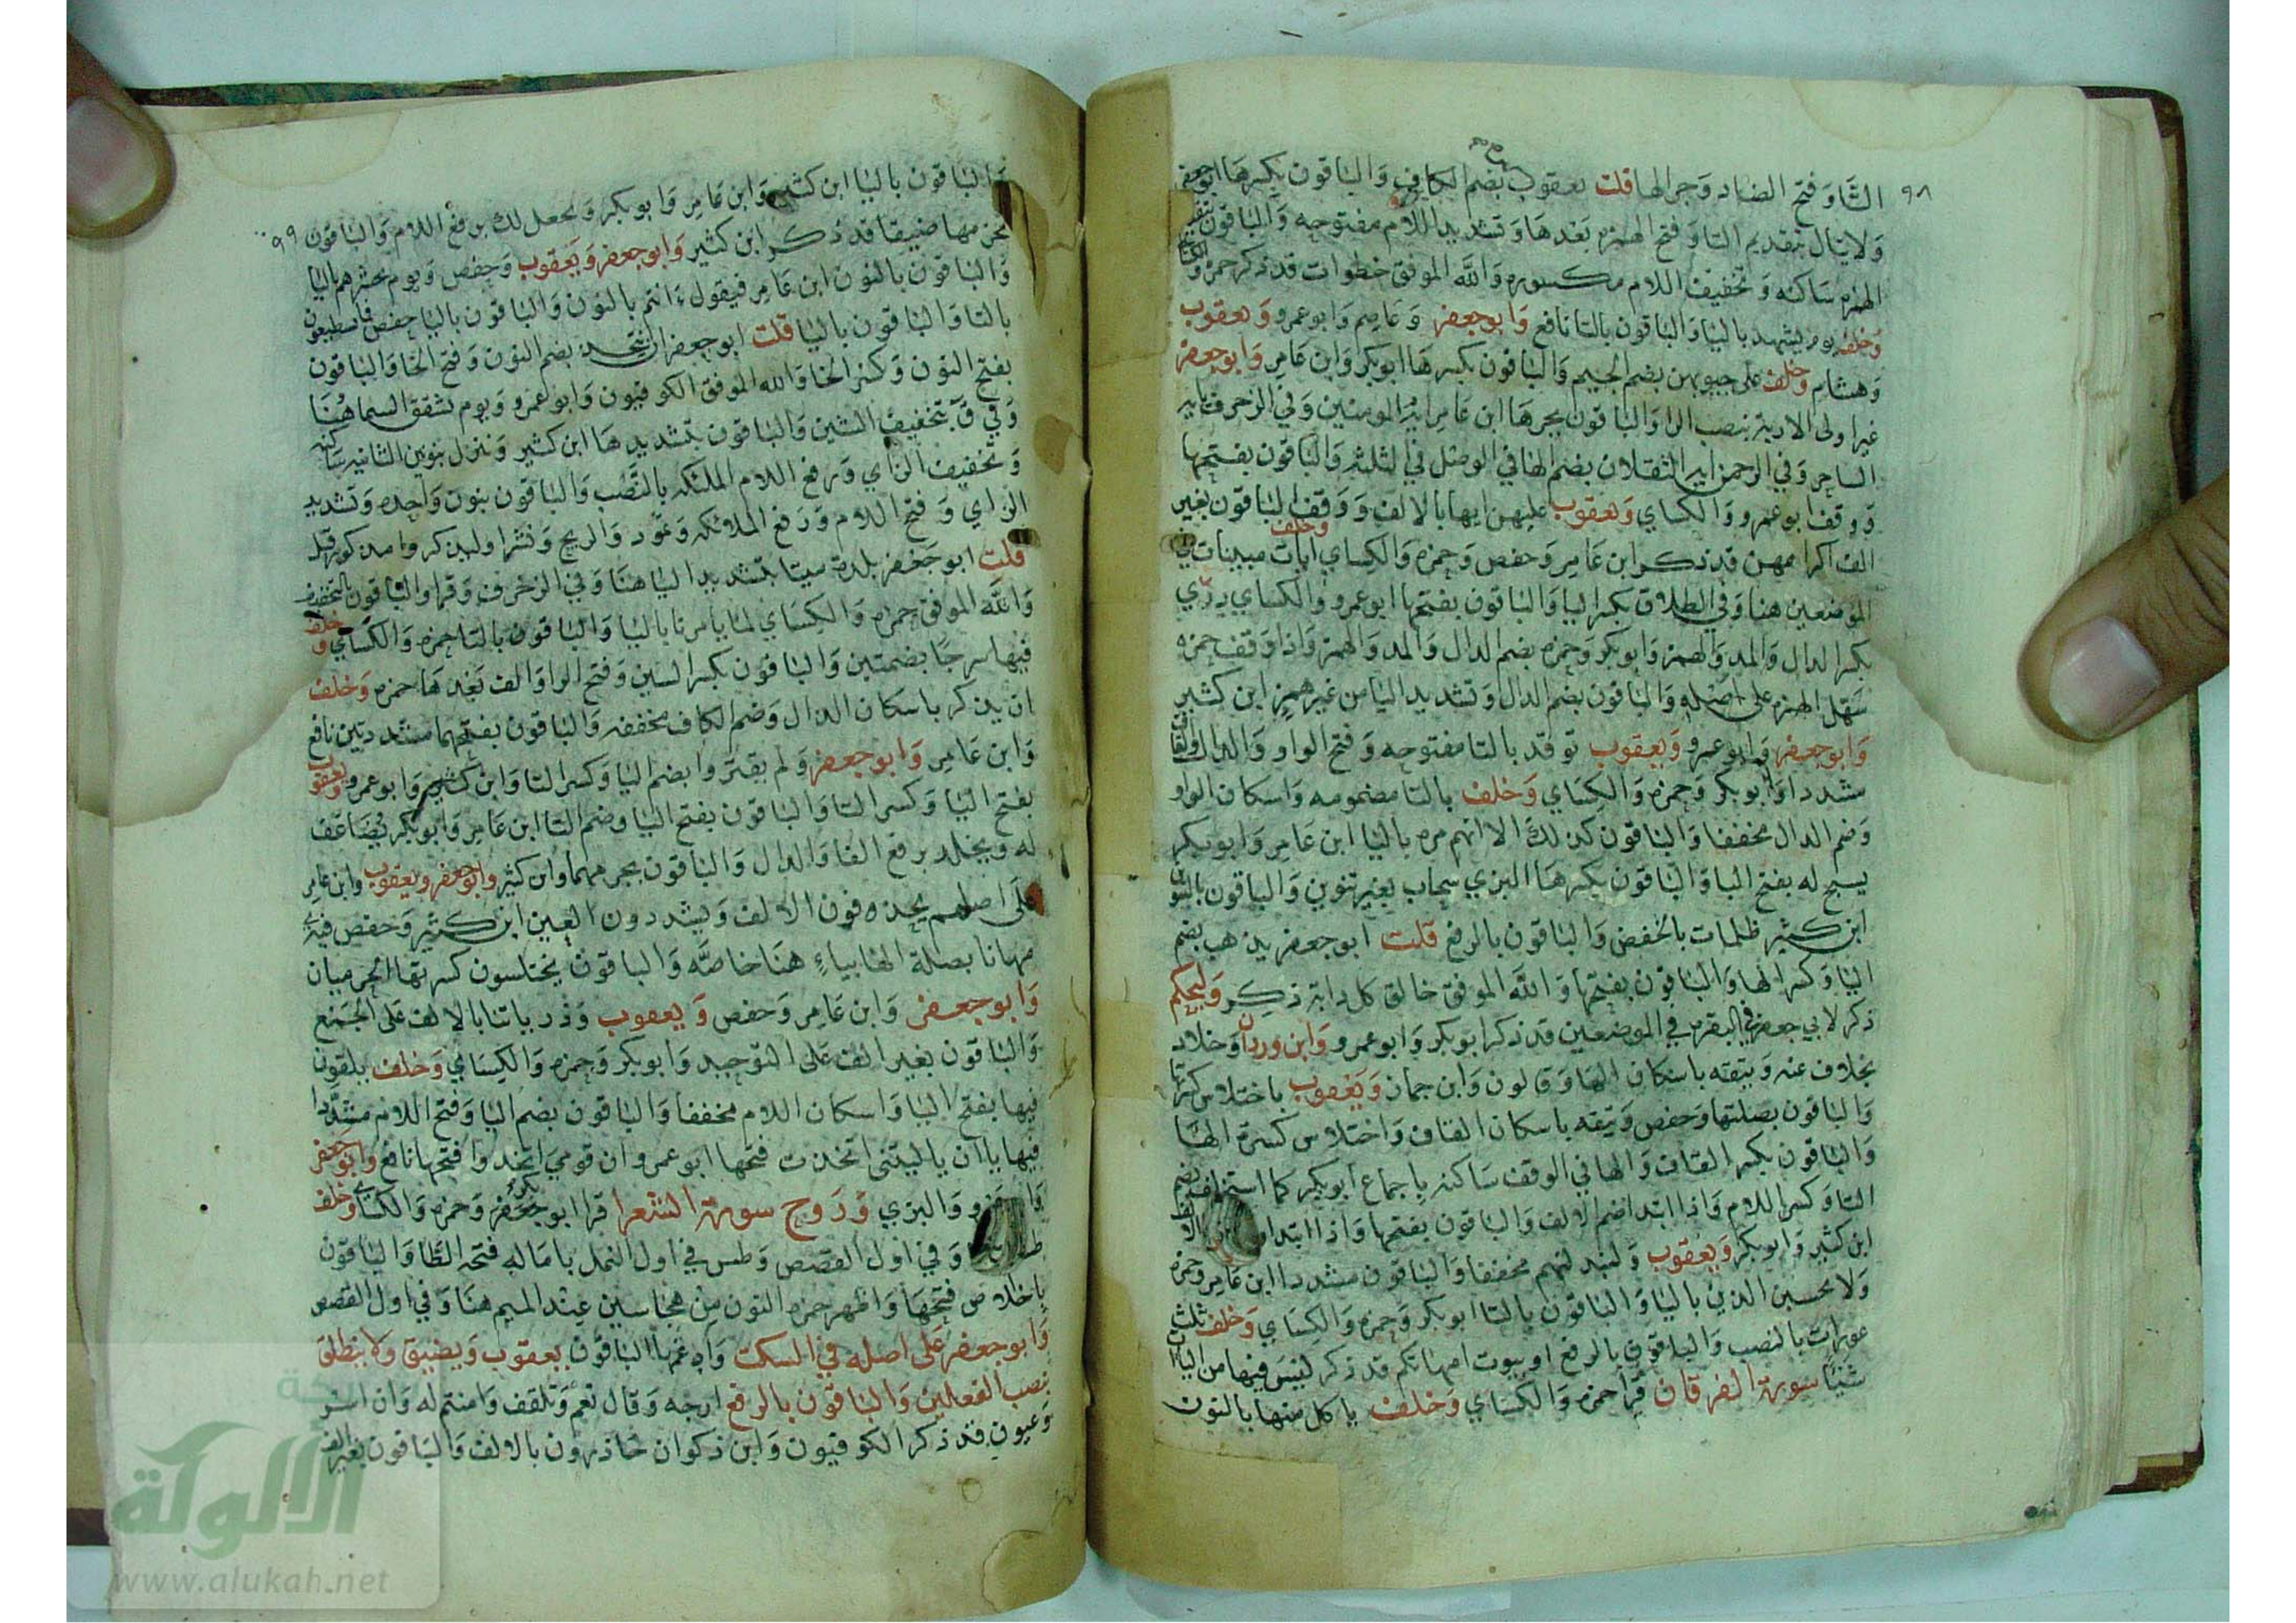 ٩٨
التا وفتح الضاد وجر الها قلت يعقوب بضم الكاف والباقون بكسرها ابوجعفر
ولا يتال بتقديم التا وفتح الهمزه بعدها وتشديد اللام مفتوحه والباقون
الهمزه ساكنه وتخفيف اللام مكسوره والله الموفق خطوات قد ذكر حمزه والكسائي
وخلف يوم يشهد باليا والباقون بالتا نافع وابوجعفر وعاصم وابوعمرو ويعقوب
وهشام وخلف على جيوبهن بضم الجيم والباقون بكسرها ابوبكر وابن عامر وابوجعفر
غير اولى الاربة بنصب الرا والباقون بجرها ابن عامر ايه المومنين وفي الزخرف يا ايه
الساحر وفي الرحمن ايه الثقلان بضم الها في الوصل في الثلثة والباقون بفتحها
ووقف ابوعمرو والكساي ويعقوب عليهن ايها بالالف ووقف الباقون بغير
الف اكراههن قد ذكر ابن عامر وحفص وحمزه والكساي وخلف ايات مبينات في
الموضعين هنا وفي الطلاق بكسر اليا والباقون بفتحها ابوعمرو والكساي دري
بكسر الدال والمد والهمز وابوبكر وحمزه بضم الدال والمد والهمز واذا وقف حمزه
سهل الهمزه على اصله والباقون بضم الدال وتشديد اليا من غير همز ابن كثير
وابوجعفر وابوعمرو ويعقوب توقد بالتا مفتوحه وفتح الواو والدال والقاف
مشددا وابوبكر وحمزه والكساي وخلف بالتا مضمومه واسكان الواو
وضم الدال مخففا والباقون كذلك الا انهم مره باليا ابن عامر وابوبكر
يسبح له بفتح البا والباقون بكسرها البزي سحاب بغير تنوين والباقون بالتنوين
ابن كثير ظلمات بالخفض والباقون بالرفع قلت ابوجعفر يذهب بضم
اليا وكسر الها والباقون بفتحها والله الموفق خالق كل دابة ذكر وليحكم
ذكر لابي جعفر في البقره في الموضعين قد ذكر ابوبكر وابوعمرو وابن وردان وخلاد
بخلاف عنه ويتقه باسكان الها وقالون وابن جماز ويعقوب باختلاس كسرتها
والباقون بصلتها وحفص ويتقه باسكان القاف واختلاس كسرة الها
والباقون بكسر القاف والها في الوقف ساكنه باجماع ابوبكر كما استخلف بضم
التا وكسر اللام واذا ابتدا ضم الالف والباقون بفتحها واذا ابتداوا
ابن كثير وابوبكر ويعقوب وليبدلنهم مخففا والباقون مشددا ابن عامر وحمزه
ولا يحسبن الذين باليا والباقون بالتا ابوبكر وحمزه والكساي وخلف ثلث
عورات بالنصب والباقون بالرفع او بيوت امهاتكم قد ذكر ليس فيها من اليات
شيئا سورة الفرقان قرا حمزه والكساي وخلف ياكل منها بالنون
٩٩
والباقون باليا ابن كثير وابن عامر وابوبكر ويجعل لك برفع اللام والباقون
بجزمها ضيقا قد ذكر ابن كثير وابوجعفر ويعقوب وحفص ويوم يحشرهم باليا
والباقون بالنون ابن عامر فيقول ءانتم بالنون والباقون باليا حفص فما تستطيعون
بالتا والباقون باليا قلت ابوجعفر ان نتخذ بضم النون وفتح الخا والباقون
بفتح النون وكسر الخا والله الموفق الكوفيون وابوعمرو ويوم تشقق السما هنا
وفي ق بتخفيف الشين والباقون بتشديدها ابن كثير وننزل بنونين الثانيه ساكنه
وتخفيف الزاي ورفع اللام الملئكه بالنصب والباقون بنون واحده وتشديد
الزاي وفتح اللام ورفع الملائكه وثمود والريح ونشرا وليذكروا مذكور قبل
قلت ابوجعفر بلدة ميتا بتشديد اليا هنا وفي الزخرف وق والباقون بالتخفيف
والله الموفق حمزه والكساي لما يامرنا باليا والباقون بالتا حمزه والكساي وخلف
فيها سرجا بضمتين والباقون بكسر السين وفتح الرا والف بعدها حمزه وخلف
ان يذكر باسكان الدال وضم الكاف مخففه والباقون بفتحهما مشددتين نافع
وابن عامر وابوجعفر ولم يقتروا بضم اليا وكسر التا وابن كثير وابوعمرو ويعقوب
بفتح اليا وكسر التا والباقون بفتح اليا وضم التا ابن عامر وابوبكر يضاعف
له ويخلد برفع الفا والدال والباقون بجزمهما وابن كثير وابوجعفر ويعقوب وابن عامر
على اصلهم يحذفون الالف ويشددون العين ابن كثير وحفص فيه
مهانا بصلة الها بياء هنا خاصه والباقون يختلسون كسرتها الحرميان
وابوجعفر وابن عامر وحفص ويعقوب وذرياتنا بالالف على الجمع
والباقون بغير الف على التوحيد وابوبكر وحمزه والكساي وخلف يلقون
فيها بفتح اليا واسكان اللام مخففا والباقون بضم اليا وفتح اللام مشددا
فيها ياان ياليتنى اتخذت فتحها ابوعمرو ان قومي اتخذوا فتحها نافع وابوجعفر
وابوعمرو والبزي وروح سورة الشعرا قرا ابوبكر وحمزه والكساي وخلف
طسم هنا وفي اول القصص وطس في اول النمل بامالة فتحه الطا والباقون
باخلاص فتحها واظهر حمزه النون من هجا سين عند الميم هنا وفي اول القصص
وابوجعفر على اصله في السكت وادغمها الباقون يعقوب ويضيق ولا ينطلق
بنصب الفعلين والباقون بالرفع ارجه وقال نعم وتلقف وامنتم له وان اسر
وعيون قد ذكر الكوفيون وابن ذكوان حاذرون بالالف والباقون بغير الف
الألوكة
www.alukah.net